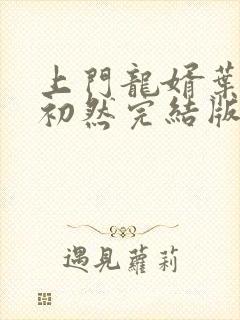 上門龍婿葉
初然完結版
遇見蘿莉